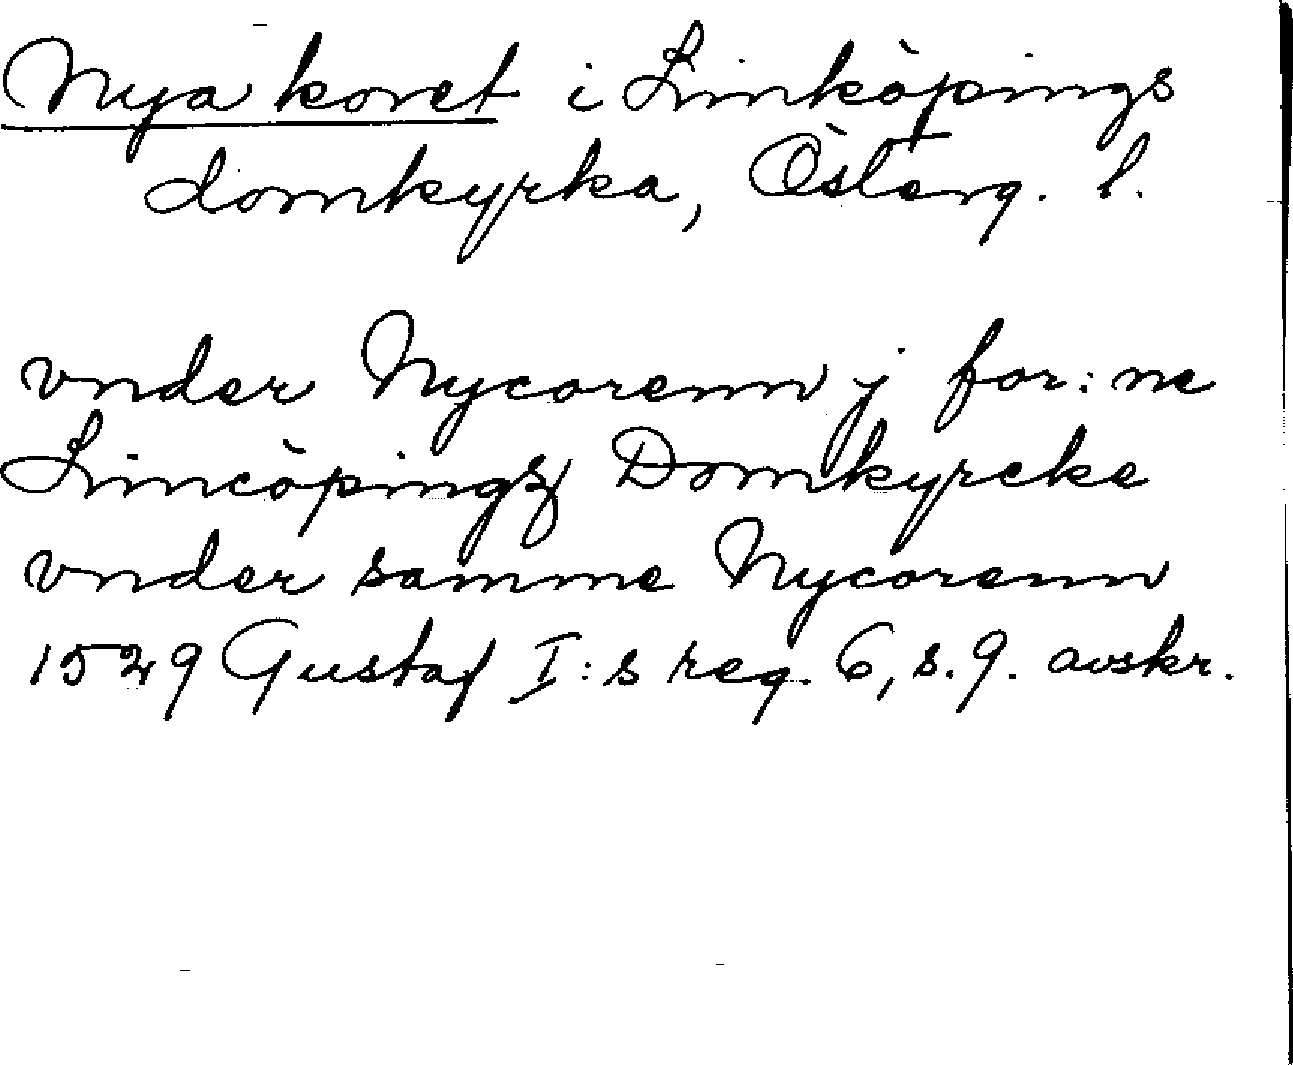 Nya koret i Linköpings
domkyrka, Österg. l.
vnder Nycorenn j for:ne
Lincöpingz Domkyrcke
vnder samme Nycorenn
1529 Gustaf I:s reg. 6, s. 9. avskr.